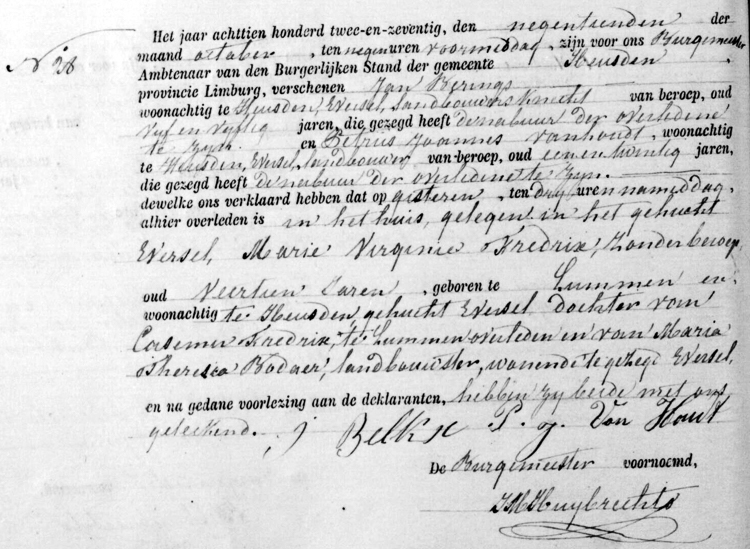 Het jaar achttien honderd twee-en-zeventig, den negentienden der
N° 28
maand october, ten negen uren voormiddag, zijn voor ons Burgemeester
Ambtenaar van den Burgerlijken Stand der gemeente Heusden
provincie Limburg, verschenen Jan
woonachtig te Heusden, Eversel, landbouwersknecht van beroep, oud
vyf en vyftig jaren, die gezegd heeft de nabuer der overledene
te zyn. en Petrus Joannes Vanhoudt, woonachtig
te Heusden, Eversel, landbouwer van beroep, oud een en twintig jaren,
die gezegd heeft de nabuer der overledene te zyn.
dewelke ons verklaard hebben dat op gisteren, ten dry uren namiddag,
alhier overleden is in het huis, gelegen in het gehucht
Eversel, Marie Virginie Fredrix, zonder beroep
oud Veertien Jaren, geboren te Lummen en
woonachtig te Heusden gehucht Eversel, dochter van
Casemer Fredrix, te Lummen overleden en van Maria
Theresia, landbouwster, wonende te gezegd Eversel,
en na gedane voorlezing aan de deklaranten, hebben zy beide met ons
geteekend. j P. j. Van Hout
De Burgemeester voornoemd,
Huybrechts